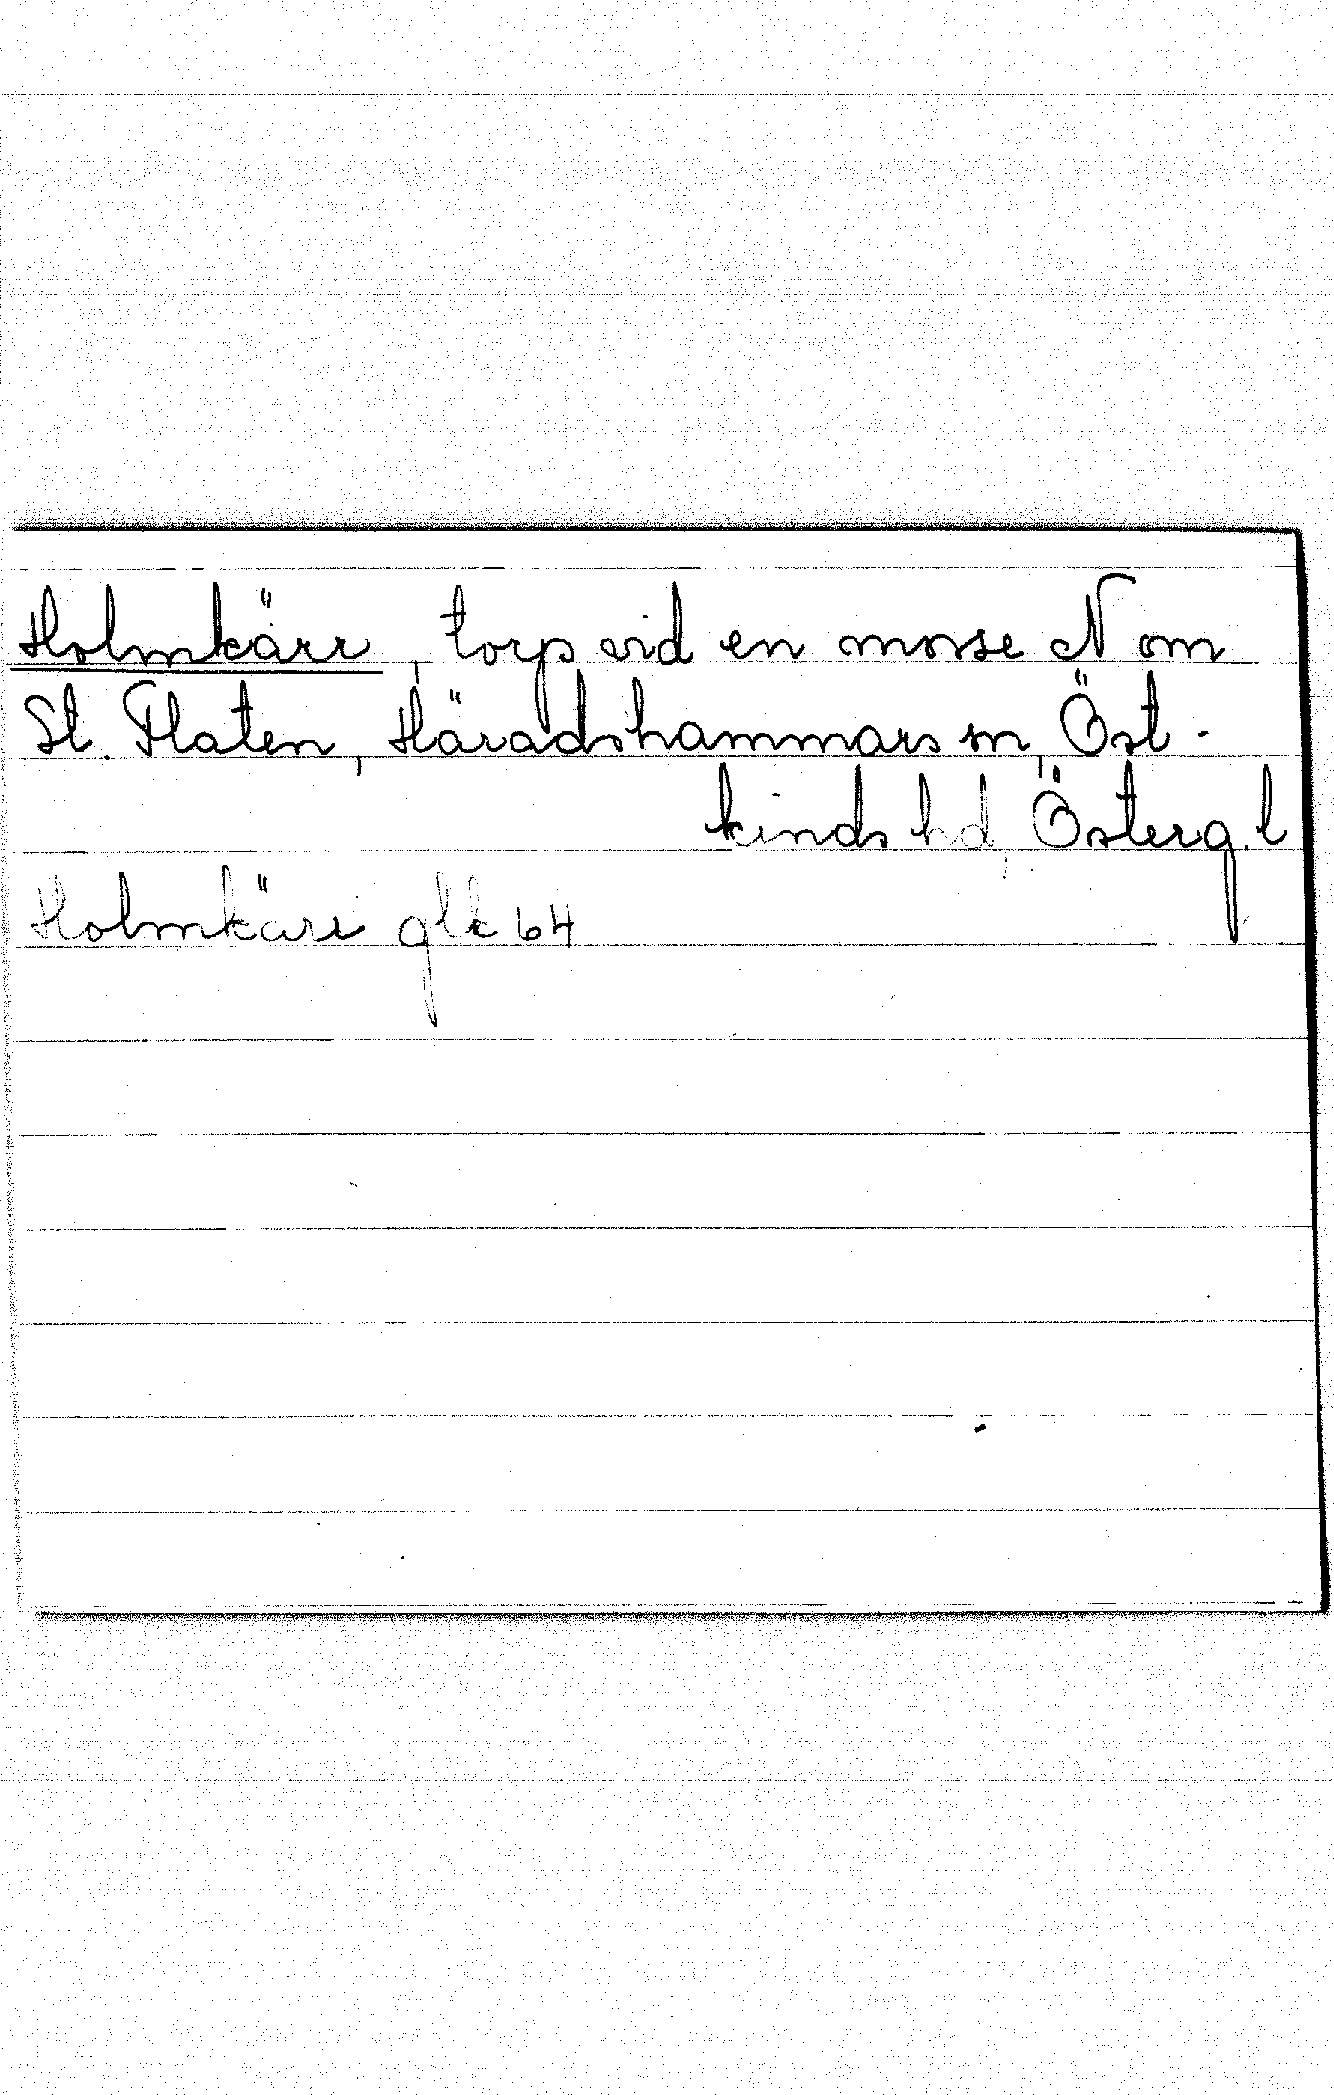 Holmkärr, torp vid en mosse N om
St. Flaten, Häradshammars sn, Öst-
kinds hd, Österg. l
Holmkärr glk 64